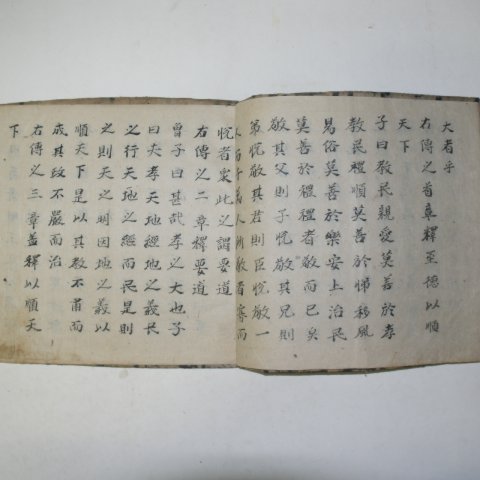 大者乎
右傳之首章釋至德以順
天下
子曰敎民親愛莫善於孝
敎民禮順莫善於悌移風
易俗莫善於樂安上治民
莫善於禮者敬而已矣
敬其父則子悅敬其兄則
弟悅敬其君則臣悅敬一
人而千萬人悅所敬者寡而
悅者衆此之謂要道
右傳之二章釋要道
曾子曰甚哉孝之大也子
曰夫孝天之經地之義民
之行天地之經而民是則
之則天之明因地之義以
順天下是以其敎不肅而
成其政不嚴而治
右傳之三章蓋釋以順天
下